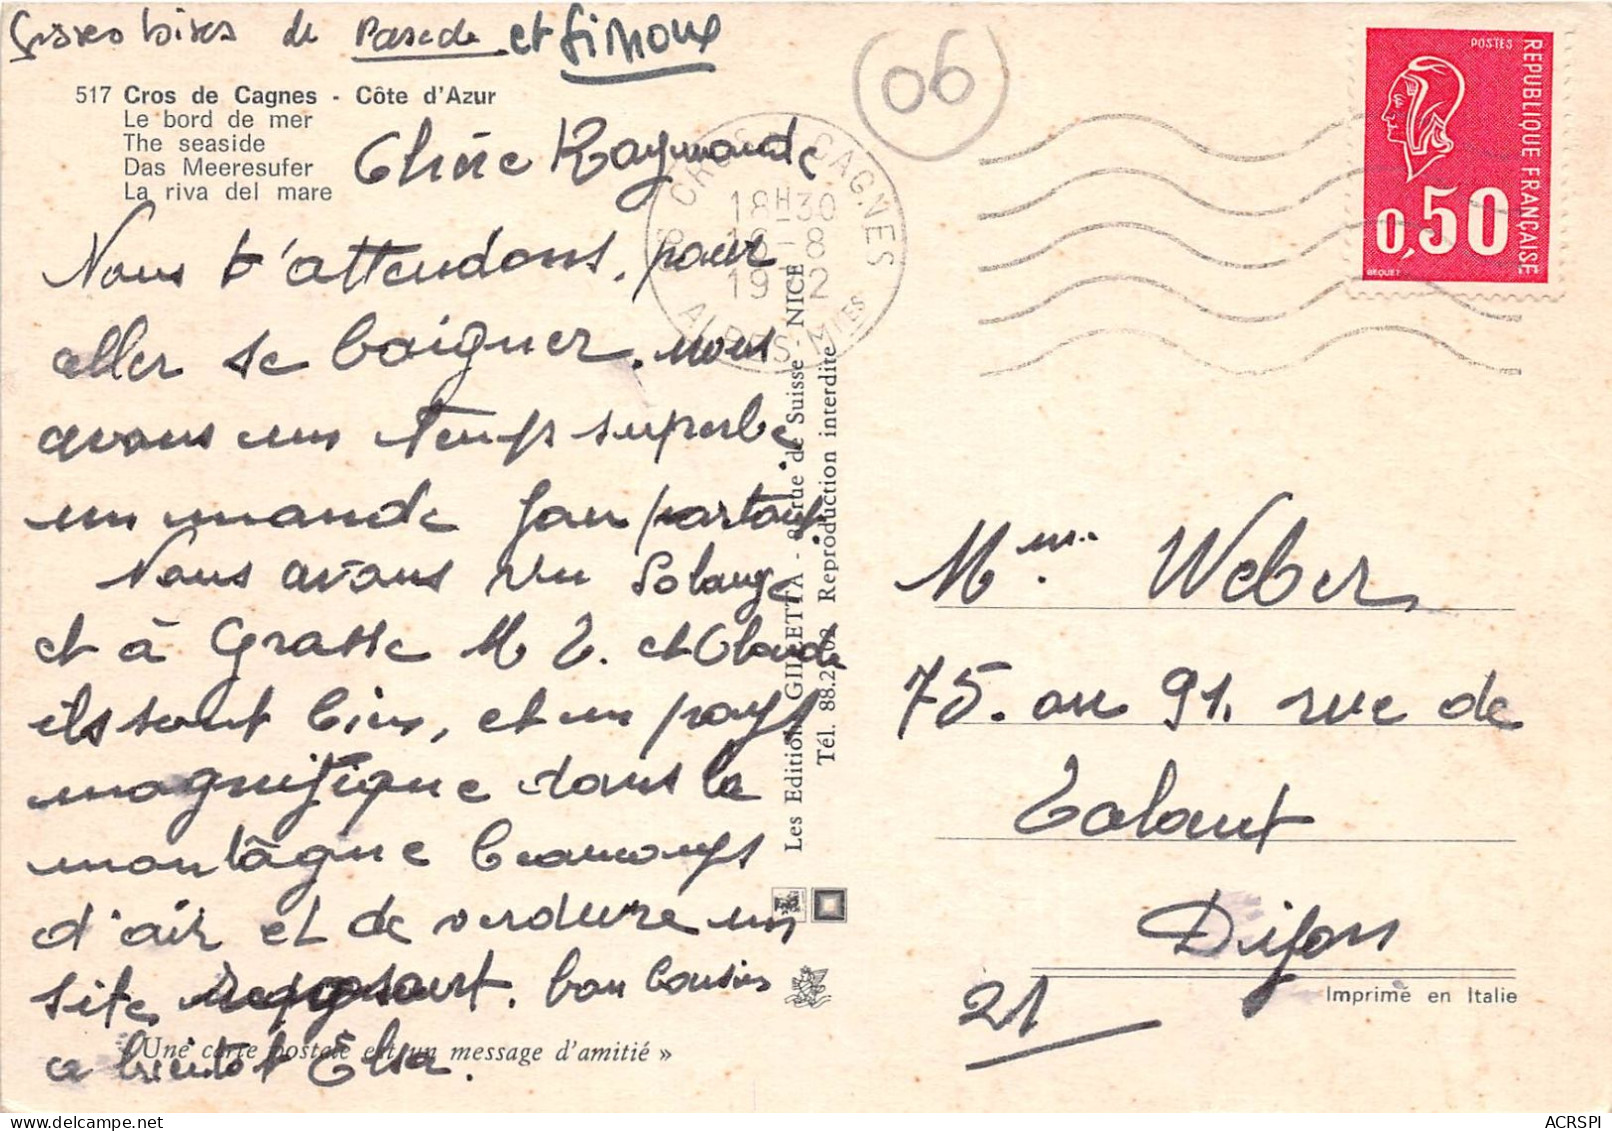 Grosses bises de Pascale et Simone
517 Cros de Cagnes - Côte d'Azur
Le bord de mer
The seaside
Das Meeresufer
La riva del mare
Chère Raymonde
Nous t'attendons, pour
aller se baigner. nous
avons un temps superbe
un monde fou partout.
Nous avons vu Solange
et à Grasse M T. et Claude
ils sont bien, et un pays
magnifique dans la
montagne beaucoups
d'air et de verdure un
site reposant. bon baisers
a bientôt Elsa.
« Une carte postale est un message d'amitié »
CROS CAGNES
18H30
16-8
1972
ALPES-MMES
Les Editions GILLETTA - rue de Suisse - NICE
Tél. 88. Reproduction interdite
06
POSTES
REPUBLIQUE FRANÇAISE
0,50
BEQUET
Mme. Weber
75. au 91. rue de
Talant
Dijon
21
Imprimé en Italie
ACRSPI